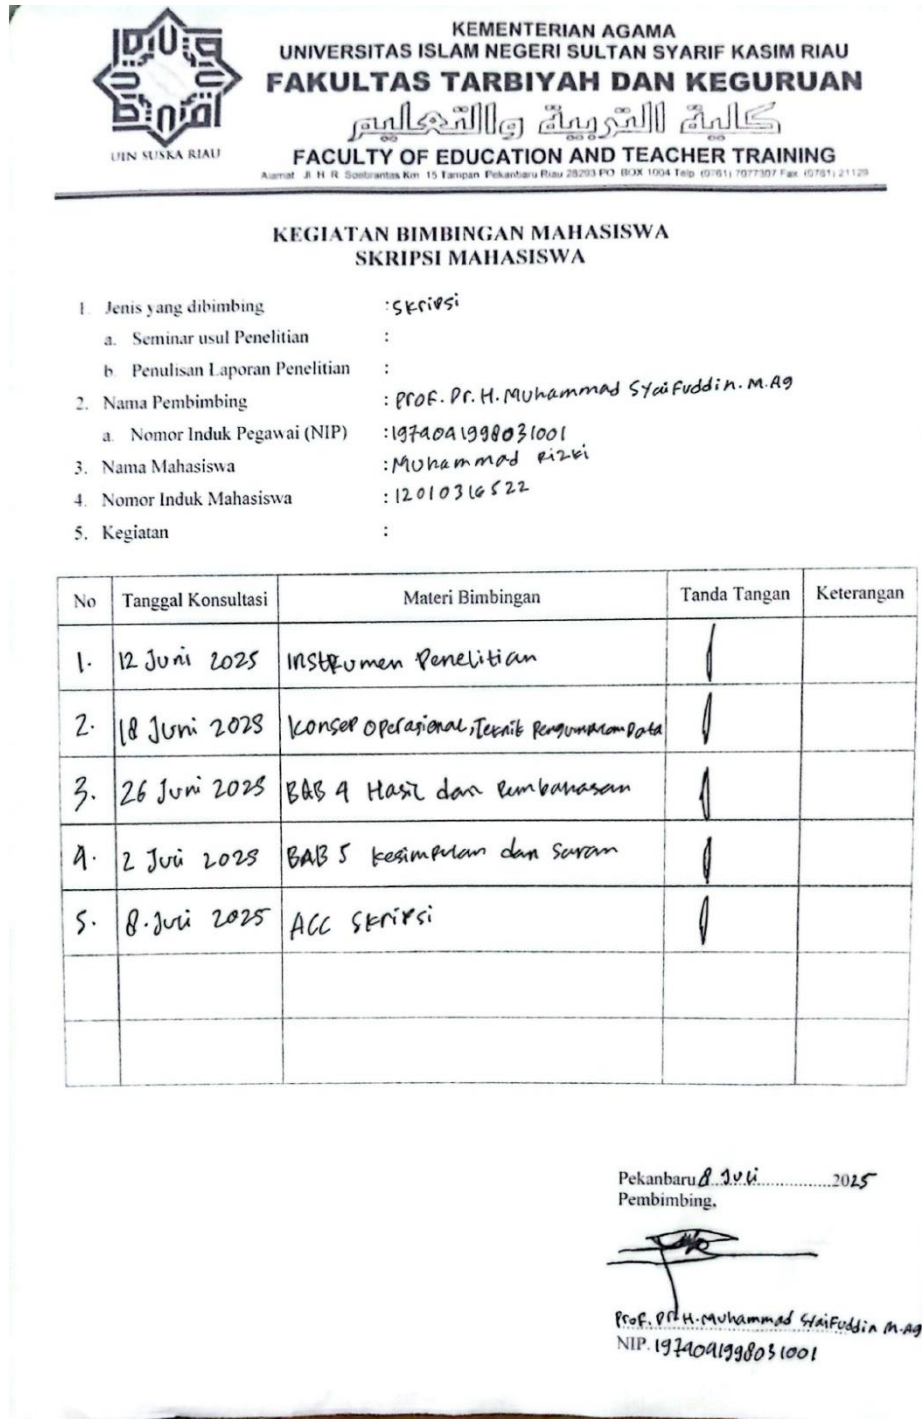 KEMENTERIAN AGAMA
UNIVERSITAS ISLAM NEGERI SULTAN SYARIF KASIM RIAU
FAKULTAS TARBIYAH DAN KEGURUAN
كلية التربية والتعليم
FACULTY OF EDUCATION AND TEACHER TRAINING
Alamat Jl. H. R. Soebrantas Km. 15 Tampan Pekanbaru Riau 28293 PO. BOX 1004 Telp. (0761) 7077307 Fax. (0761) 21129
UIN SUSKA RIAU
KEGIATAN BIMBINGAN MAHASISWA
SKRIPSI MAHASISWA
1. Jenis yang dibimbing : Skripsi
a. Seminar usul Penelitian :
b. Penulisan Laporan Penelitian :
2. Nama Pembimbing : Prof. Dr. H. Muhammad Syaifuddin. M.Ag
a. Nomor Induk Pegawai (NIP) :
3. Nama Mahasiswa : Muhammad Rizki
4. Nomor Induk Mahasiswa : 12010316522
5. Kegiatan :
No Tanggal Konsultasi Materi Bimbingan Tanda Tangan Keterangan
1. 12 Juni 2025 Instrumen Penelitian
2. 18 Juni 2025 Konsep Operasional, Teknik Pengumpulan Data
3. 26 Juni 2025 BAB 4 Hasil dan Pembahasan
4. 2 Juli 2025 BAB 5 Kesimpulan dan Saran
5. 8 Juli 2025 ACC Skripsi
Pekanbaru 8 Juli 2025
Pembimbing,
Prof. Dr. H. Muhammad Syaifuddin M.Ag
NIP.